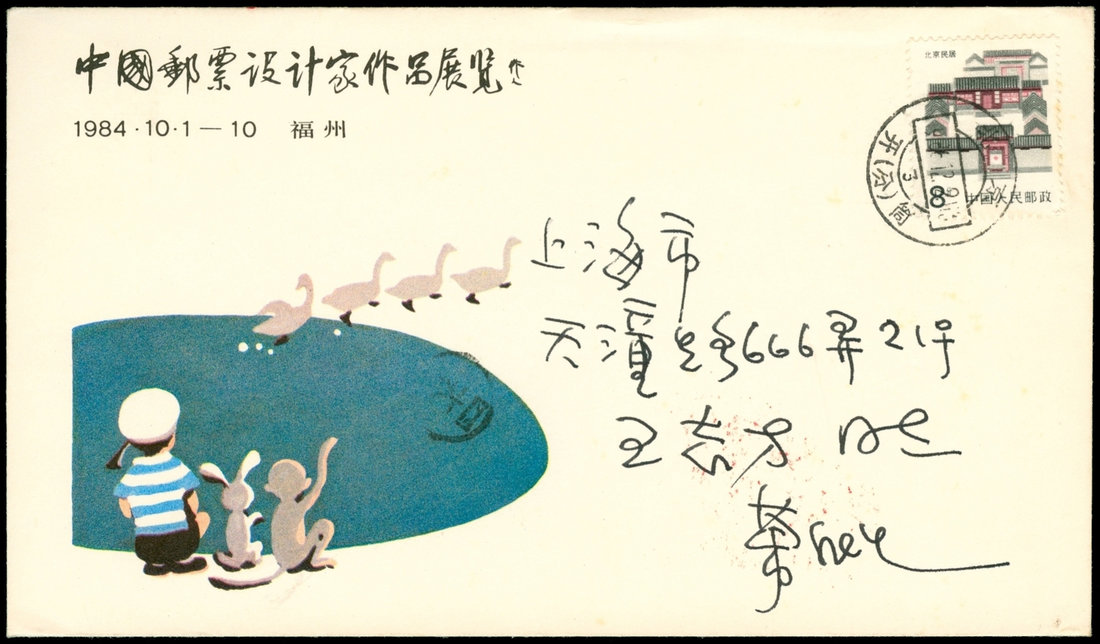 中國郵票设计家作品展览
1984·10·1—10 福州
北京民居
8
中国人民邮政
开(分)筒
3
上海市
天潼路666弄21号
王志方